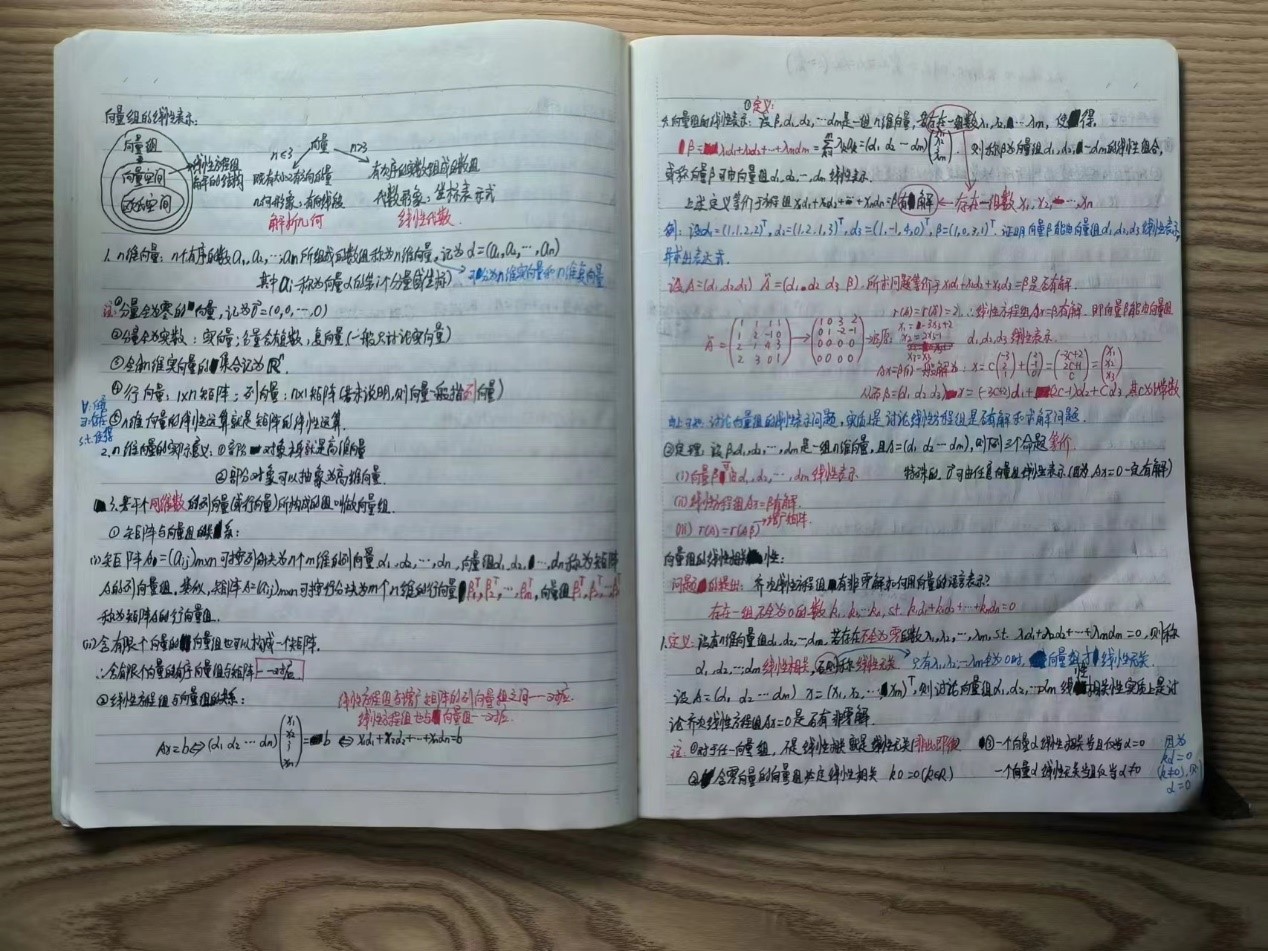 向量组的线性表示:
向量组
向量空间
欧氏空间
线性方程组
解的结构
n≤3 向量 n>3
既有大小又有方向的量
几何形象:有向线段
解析几何
有次序的实数组成的数组
代数形象:坐标表示式
线性代数
1. n维向量: n个有序的数a₁,a₂,…,aₙ所组成的数组称为n维向量,记为α=(a₁,a₂,…,aₙ)
其中aᵢ称为向量α的第i个分量(或坐标) → 可分为n维实向量和n维复向量
注:①分量全为零的向量,记为0=(0,0,…,0)
②分量全为实数:实向量;分量含有复数,复向量(一般只讨论实向量)
③全体n维实向量的集合记为Rⁿ
④行向量:1×n矩阵;列向量:n×1矩阵(若未说明,则向量一般指列向量)
⑤n维向量的线性运算就是矩阵的线性运算.
2. n维向量的实际意义:①部分对象本身就是高维向量
②部分对象可以抽象为高维向量.
3. 若干个同维数的列向量(或行向量)所构成的组叫做向量组.
①矩阵与向量组的关系:
(i)矩阵A=(aᵢⱼ)m×n可按列分块为n个m维的列向量α₁,α₂,…,αₙ,向量组α₁,α₂,…,αₙ称为矩阵
A的列向量组,类似,矩阵A=(aᵢⱼ)m×n可按行分块为m个n维的行向量β₁ᵀ,β₂ᵀ,…,βₘᵀ,向量组β₁ᵀ,β₂ᵀ,…βₘᵀ
称为矩阵A的行向量组.
(ii)含有限个向量的向量组也可以构成一个矩阵.
∴含有限个向量的有序向量组与矩阵一一对应
②线性方程组与向量组的关系:
线性方程组与增广矩阵的列向量组之间一一对应.
线性方程组也与向量组一一对应.
Ax=b⇔(α₁ α₂ … αₙ)(x₁ x₂ ⋮ xₙ)=b ⇔ x₁α₁+x₂α₂+…+xₙαₙ=b
①定义:
4.向量组的线性表示: 设β,α₁,α₂,…αm是一组n维向量,若存在一组数λ₁,λ₂,…,λm,使得
β=λ₁α₁+λ₂α₂+…+λmαm=(α₁ α₂ … αm)(λ₁ λ₂ ⋮ λm) 则称β为向量组α₁,α₂,…αm的线性组合,
或称向量β可由向量组α₁,α₂,…,αm线性表示.
上述定义等价于方程组x₁α₁+x₂α₂+…+xₙαₙ=β有解 ← 存在一组数x₁,x₂,…,xₙ
例: 设α₁=(1,1,2,2)ᵀ,α₂=(1,2,1,3)ᵀ,α₃=(1,-1,4,0)ᵀ,β=(1,0,3,1)ᵀ.证明向量β能由向量组α₁,α₂,α₃线性表示,
并求出表达式.
设A=(α₁ α₂ α₃) Ã=(α₁ α₂ α₃ β).所求问题等价于x₁α₁+x₂α₂+x₃α₃=β是否有解.
r(A)=r(Ã)=2,∴线性方程组Ax=β有解.即向量β能由向量组
α₁,α₂,α₃线性表示.
Ã=(1 1 1 1
1 2 -1 0
2 1 4 3
2 3 0 1)→(1 0 3 2
0 1 -2 -1
0 0 0 0
0 0 0 0)
x₁=-3x₃+2
x₂=2x₃-1
x₃=x₃
Ax=β的一般解为: x=c(-3 2 1)+(2 -1 0)=(-3c+2 2c-1 c)=(x₁ x₂ x₃)
(-3c+2)α₁+(2c-1)α₂+cα₃,其c为任意数
讨论向量组的线性表示问题,实质上是讨论线性方程组是否有解和求解问题.
②定理:设β,α₁,α₂,…,αm是一组n维向量,且A=(α₁ α₂ … αm),则下列三个命题等价.
(i)向量β可由α₁,α₂,…,αm线性表示 特殊的,0可由任意向量组线性表示(因为Ax=0一定有解)
(ii)线性方程组Ax=β有解.
(iii) r(A)=r(Aβ)→增广矩阵.
向量组的线性相关性:
问题的提出: 齐次线性方程组有非零解如何用向量的语言表示?
存在一组不全为0的数k₁,k₂…kₙ,s.t. k₁α₁+k₂α₂+…+kₙαₙ=0
1.定义:设有n维向量组α₁,α₂,…αm,若存在不全为零的数λ₁,λ₂,…,λm,s.t. λ₁α₁+λ₂α₂+…+λmαm=0,则称
α₁,α₂,…,αm线性相关,否则称线性无关 只有λ₁,λ₂,…λm全为0时,向量组才线性无关.
设A=(α₁ α₂ … αm) x=(x₁,x₂,…,xm)ᵀ,则讨论向量组α₁,α₂,…αm线性相关性实质上是讨
论齐次线性方程组Ax=0是否有非零解.
注:①对于任一向量组,不是线性相关就是线性无关 ③一个向量α线性相关当且仅当α=0
②含零向量的向量组必定线性相关 k0=0(k∈R) 一个向量α线性无关当且仅当α≠0
因为
kα=0
(k≠0),
α=0